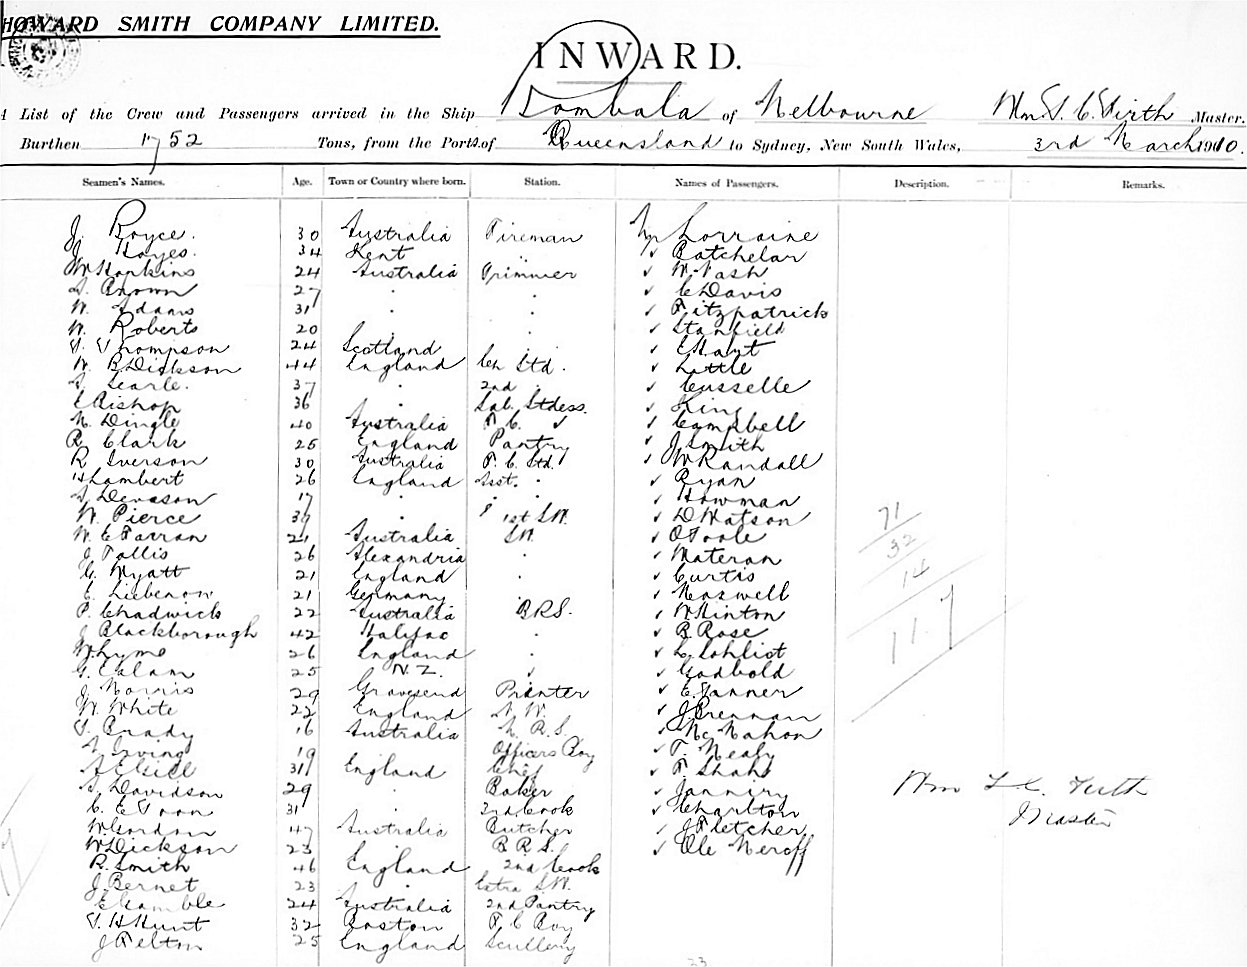 HOWARD SMITH COMPANY LIMITED.
INWARD.
A List of the Crew and Passengers arrived in the Ship Bombala of Melbourne Wm. L. C. Firth Master.
Burthen 1752 Tons, from the Ports of Queensland to Sydney, New South Wales, 3rd March 1910.
Seamen's Names. Age. Town or Country where born. Station. Names of Passengers. Description. Remarks.
J. Royce. 30 Australia Fireman Mr Lorraine
J. Hayes. 34 Kent " ✓ Batchelar
W Hopkins 24 Australia Trimmer ✓ W. Nash
S. Brown 27 " " ✓ C Davis
W. Adams 31 " " ✓ Fitzpatrick
W. Roberts 20 " " ✓ Stanfield
T. Thompson 24 Scotland " ✓ E Hayt
W. B Dickson 44 England Ch Std. ✓ Little
S. Searle. 37 " 2nd " ✓ Cusselle
E Bishop 36 " Sal. Stdess. ✓ King
N. Dingle 40 Australia F. C. ✓ ✓ Campbell
R. Clark 25 England Pantry ✓ J. Smith
R Iverson 30 Australia F. C. Std. ✓ W Randall
H Lambert 26 England Asst. " ✓ Ryan
S. Devason 17 " " ✓ Howman
W. Pierce 39 " 1st S.W. ✓ D Watson
W. E Farran 21 Australia S.W. ✓ O'Toole
J Tallis 26 Alexandria " ✓ Materan
G. Myatt 21 England " ✓ Curtis
E. Liebenow 21 Germany " ✓ Maxwell
P. Chadwick 22 Australia B.R.S. ✓ W Hinton
J Blackborough 42 Halifax " ✓ B. Rose
W. Lyme 26 England " ✓ L. Sohlist
G. Ealam 25 N.Z. " ✓ Godbold
J Norris 29 Gravesend Printer ✓ E. Tanner
W. White 22 England N. W. ✓ J Brennan
T. Brady 16 Australia N. R. S. ✓ McMahon
S Irving 19 " Officers Boy ✓ T. Nealy
A E Gill 31 England Chef ✓ F. Shaht
S. Davidson 29 " Baker ✓ Janniry
C. E Toon 31 " 2nd Cook ✓ Charlton
W Gordon 47 Australia Butcher ✓ J Fletcher
W Dickson 23 " B R S. ✓ Ole Neroff
R. Smith 46 England 2nd Cook
J. Bernet 23 " Extra S.W.
E Gamble 24 Australia 2nd Pantry
T. H Hunt 32 Boston F. C Boy
J Felton 25 England Scullery
71
32
14
117
Wm L C. Firth
Master
23